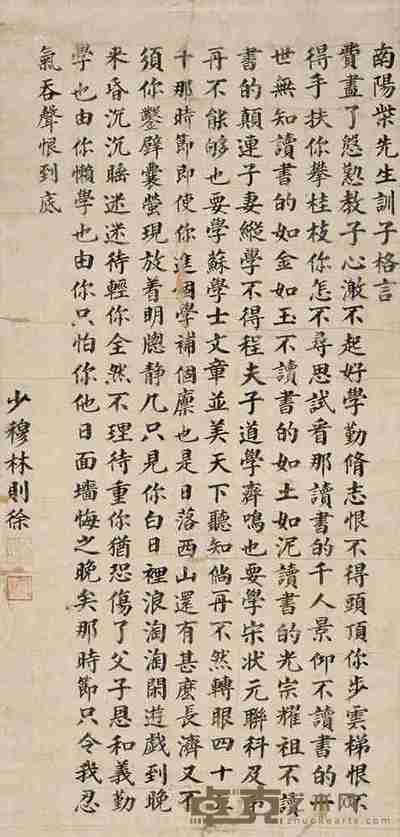 南陽柴先生訓子格言
費盡了慇懃教子心激不起好學勤脩志恨不得頭頂你步雲梯恨不
得手扶你攀桂枝你怎不尋思試看那讀書的千人景仰不讀書的一
世無知讀書的如金如玉不讀書的如土如泥讀書的光宗耀祖不讀
書的顛連子妻縱學不得程夫子道學齊鳴也要學宋狀元聯科及第
再不能够也要學蘇學士文章並美天下聽知倘再不然轉眼四十
十那時節即使你進個學補個廩也是日落西山還有甚麽長濟又不
須你鑿壁囊螢現放着明牕静几只見你白日裡浪淘淘閒遊戲到晚
来昏沉沉睡迷迷待輕你全然不理待重你猶恐傷了父子恩和義勤
學也由你懶學也由你只怕你他日面墻悔之晚矣那時節只令我忍
氣吞聲恨到底
少穆林則徐